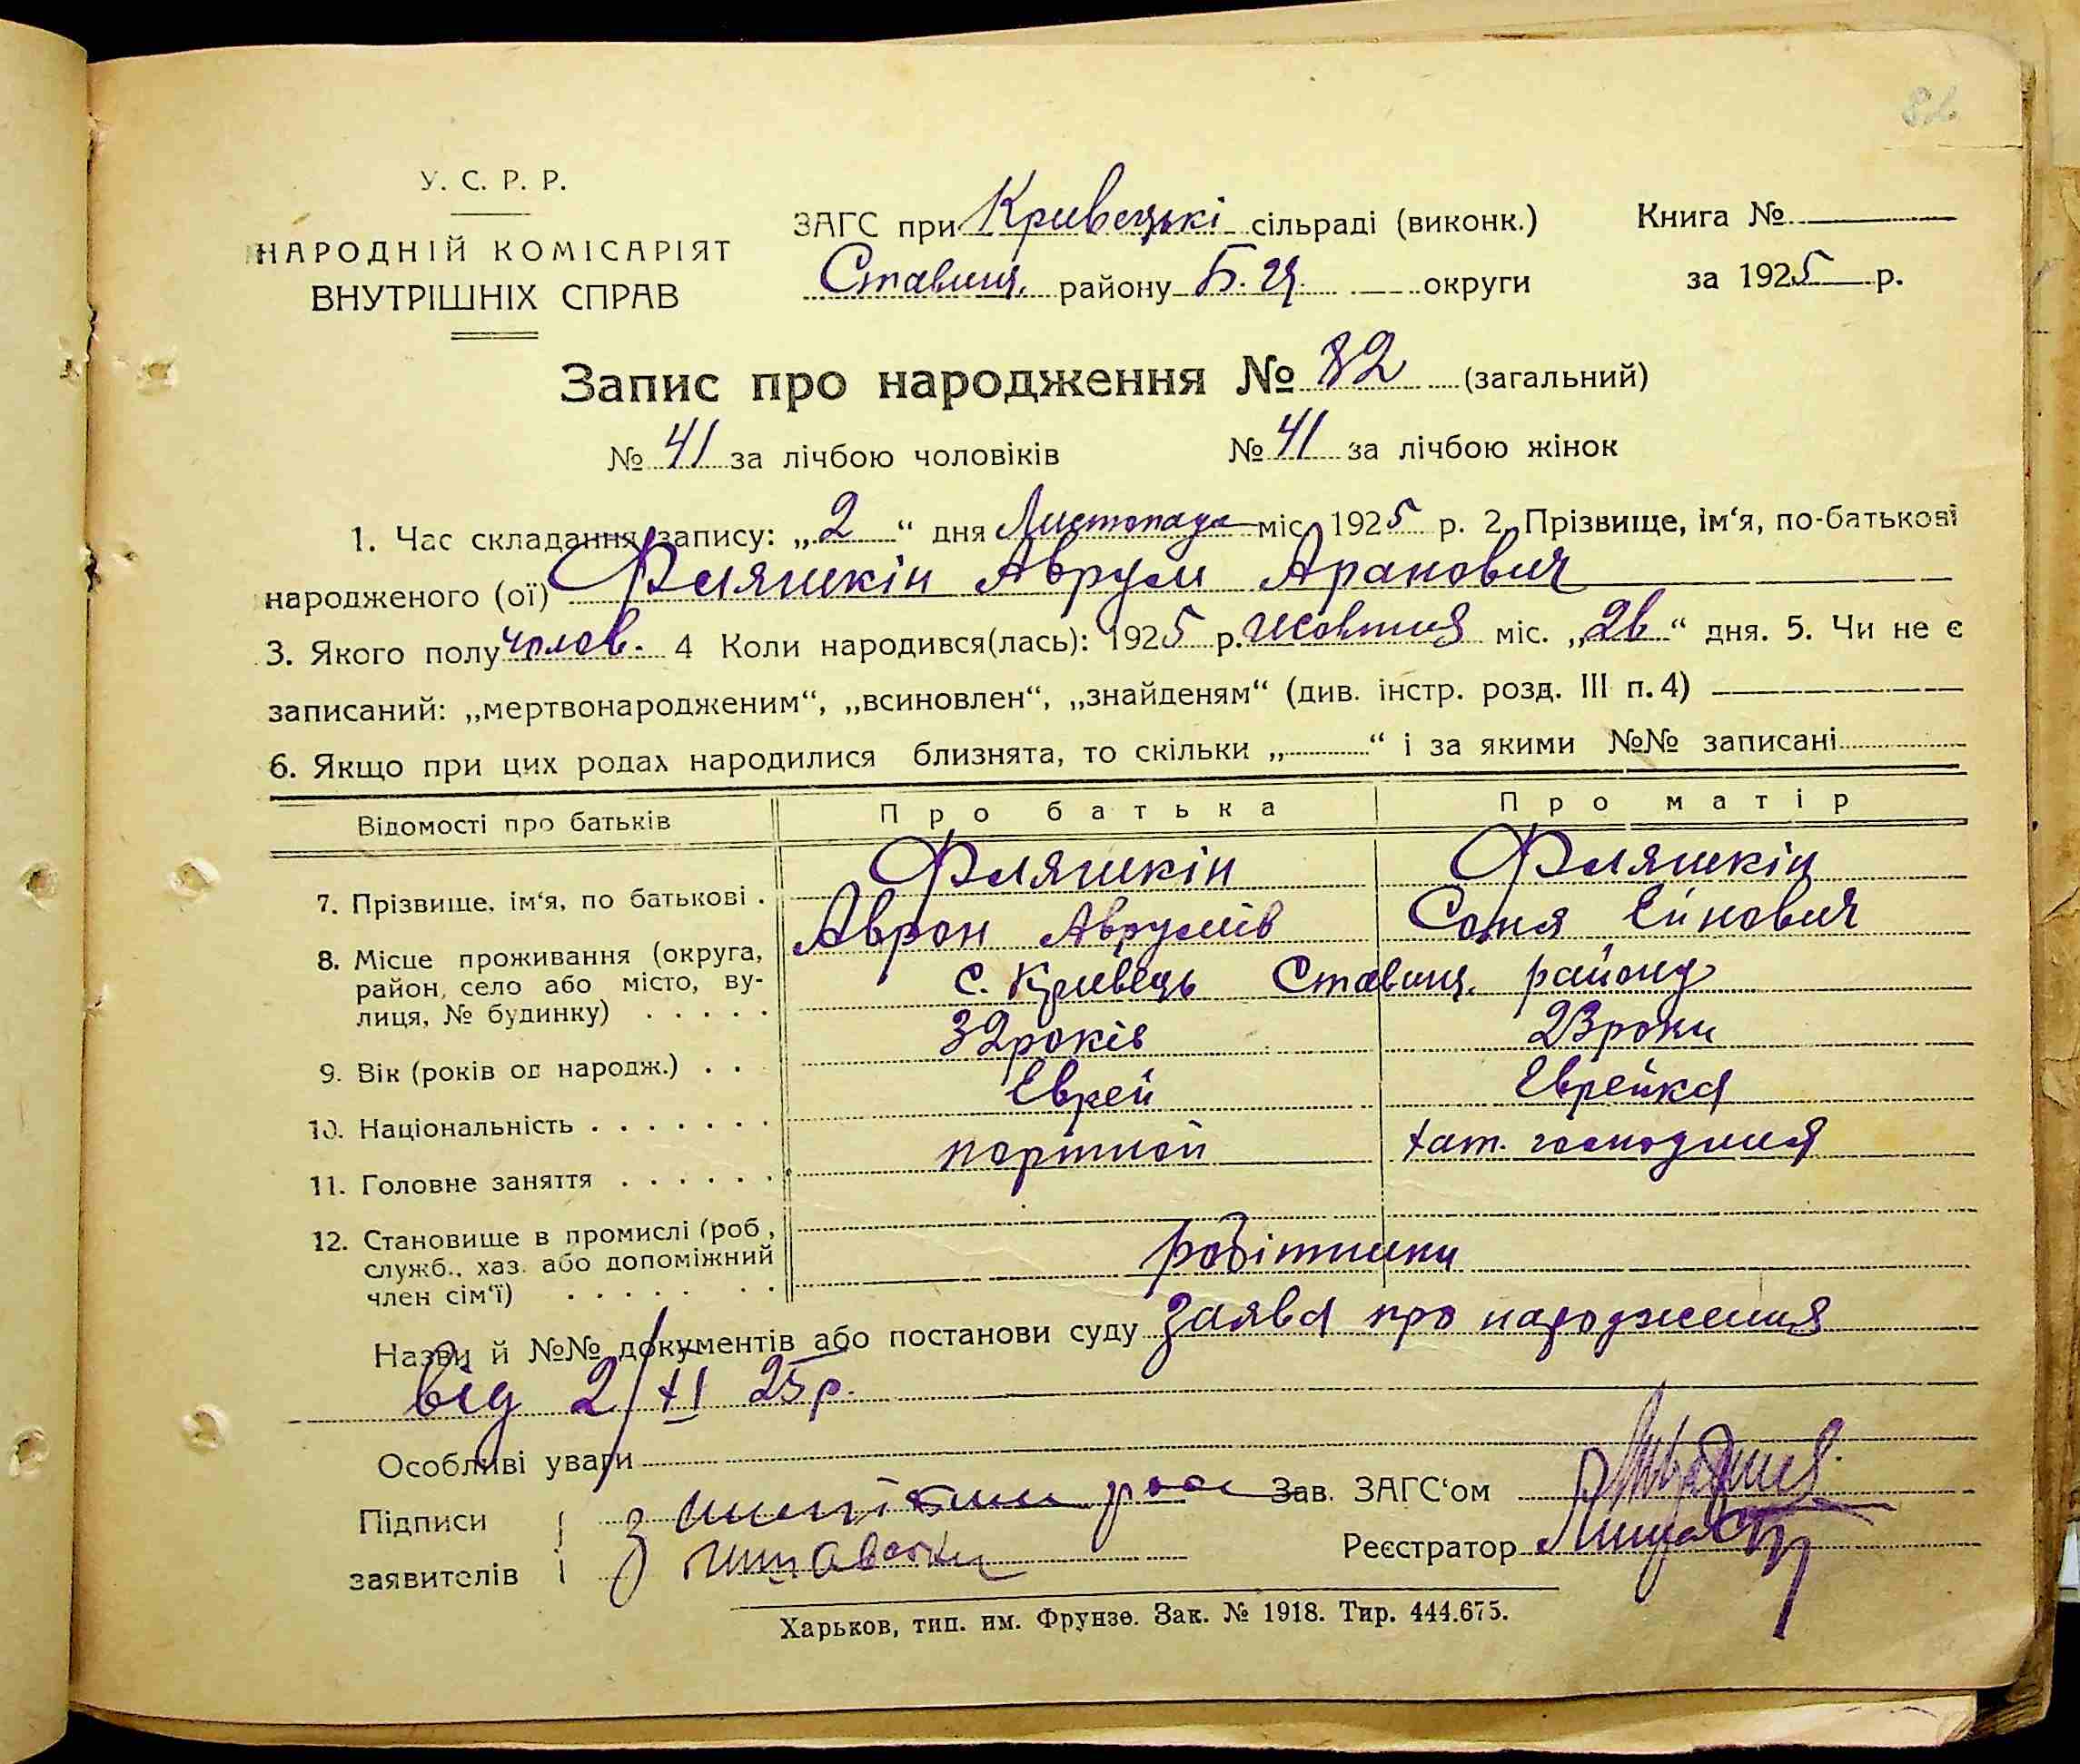 82
У. С. Р. Р.
НАРОДНІЙ КОМІСАРІЯТ
ВНУТРІШНІХ СПРАВ
ЗАГС при Кривецькі сільраді (виконк.)
Ставищ. району Б. Ц. округи
Книга №
за 1925 р.
Запис про народження № 82 (загальний)
№ 41 за лічбою чоловіків № 41 за лічбою жінок
1. Час складання запису: „2“ дня Листопада міс. 1925 р. 2. Прізвище, ім‘я, по-батькові
народженого (ої) Фляшкін Аврум Аранович
3. Якого полу чолов. 4 Коли народився(лась): 1925 р. жовтня міс. „26“ дня. 5. Чи не є
записаний: „мертвонародженим“, „всиновлен“, „знайденям“ (див. інстр. розд. III п. 4)
6. Якщо при цих родах народилися близнята, то скільки „ “ і за якими №№ записані
Відомості про батьків Про батька Про матір
7. Прізвище, ім‘я, по батькові . Фляшкін Фляшкін
Аврон Аврумів Соня Ейнович
8. Місце проживання (округа,
район, село або місто, ву-
лиця, № будинку) . . . . . с. Кривець Ставищ. району
9. Вік (років од народж.) . . 32 років 23 роки
10. Національність . . . . . . . Еврей Еврейка
11. Головне заняття . . . . . . портной хат. господиня
12. Становище в промислі (роб.,
служб., хаз. або допоміжний
член сім‘ї) . . . . . . . робітники
Назви й №№ документів або постанови суду заява про народження
від 2/XI 25 р.
Особливі уваги
Підписи
заявителів
Зав. ЗАГС‘ом
Реєстратор
Харьков, тип. им. Фрунзе. Зак. № 1918. Тир. 444.675.